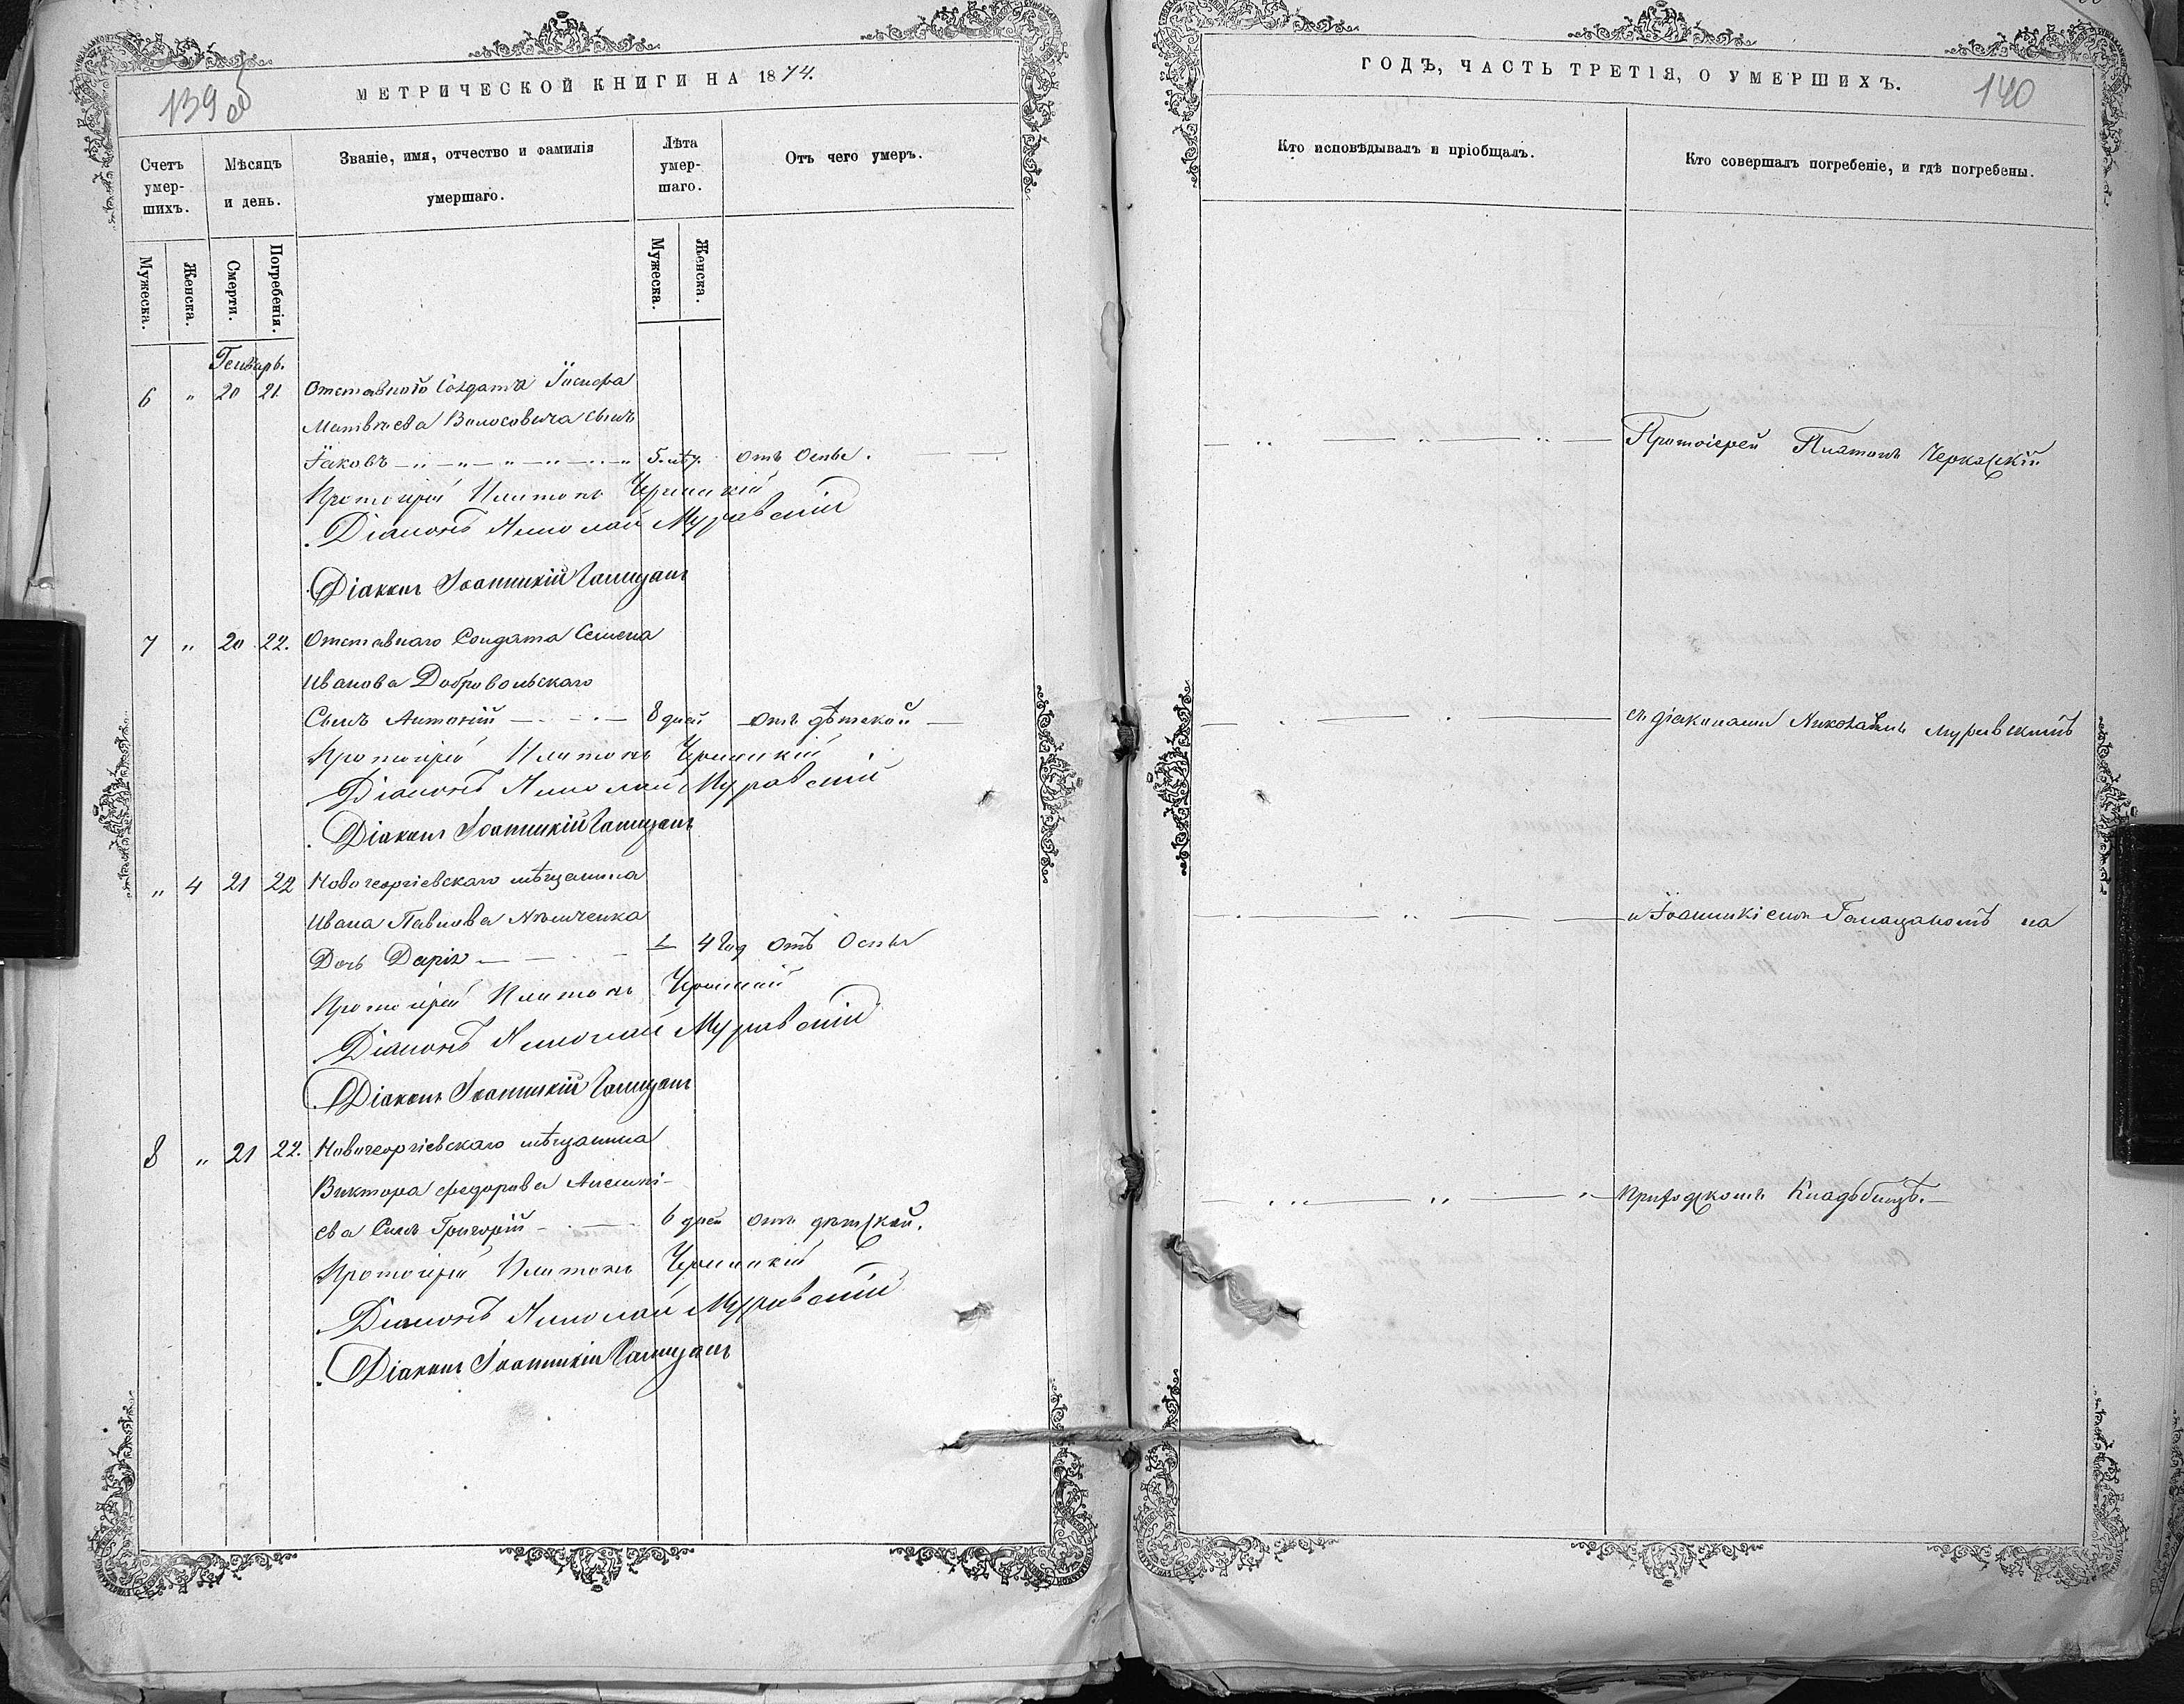 139 об
МЕТРИЧЕСКОЙ КНИГИ НА 1874.
Счетъ умер-шихъ.
Мѣсяцъ и день.
Званіе, имя, отчество и фамилія умершаго.
Лѣта умер-шаго.
Отъ чего умеръ.
Мужеска.
Женска.
Смерти.
Погребенія.
Мужеска.
Женска.
Генварь.
6 " 20 21. Отставного Солдата Іосифа
Матвѣева Волосовича сынъ
Іаковъ 5 лѣт. отъ Оспы.
Протоіерей Платонъ Черкасскій
Діаконъ Николай Муравскій
Діаконъ Іоанникій Галицанъ
7 " 20 22. Отставнаго Солдата Семена
Иванова Добровольскаго
Сынъ Антоній 8 дней отъ дѣтской
Протоіерей Платонъ Черкасскій
Діаконъ Николай Муравскій
Діаконъ Іоанникій
" 4 21 22 Новогеоргіевскаго мѣщанина
Ивана Павлова
Дочь Дарія 4 год отъ Оспы
Протоіерей Платонъ Черкасскій
Діаконъ Николай Муравскій
Діаконъ Іоанникій
8 " 21 22. Новогеоргіевскаго мѣщанина
Виктора Федорова Алексѣ-
ева Сынъ Григорій 6 дней отъ дѣтской.
Протоіерей Платонъ Черкасскій
Діаконъ Николай Муравскій
Діаконъ Іоанникій
ГОДѢ, ЧАСТЬ ТРЕТІЯ, О УМЕРШИХЪ.
140
Кто исповѣдывалъ и пріобщалъ.
Кто совершалъ погребеніе, и гдѣ погребены.
Протоіерей Платонъ Черкасскій
съ діаконами Николаемъ Муравскимъ
и Іоанникіемъ на
Приходскомъ Кладбищѣ.